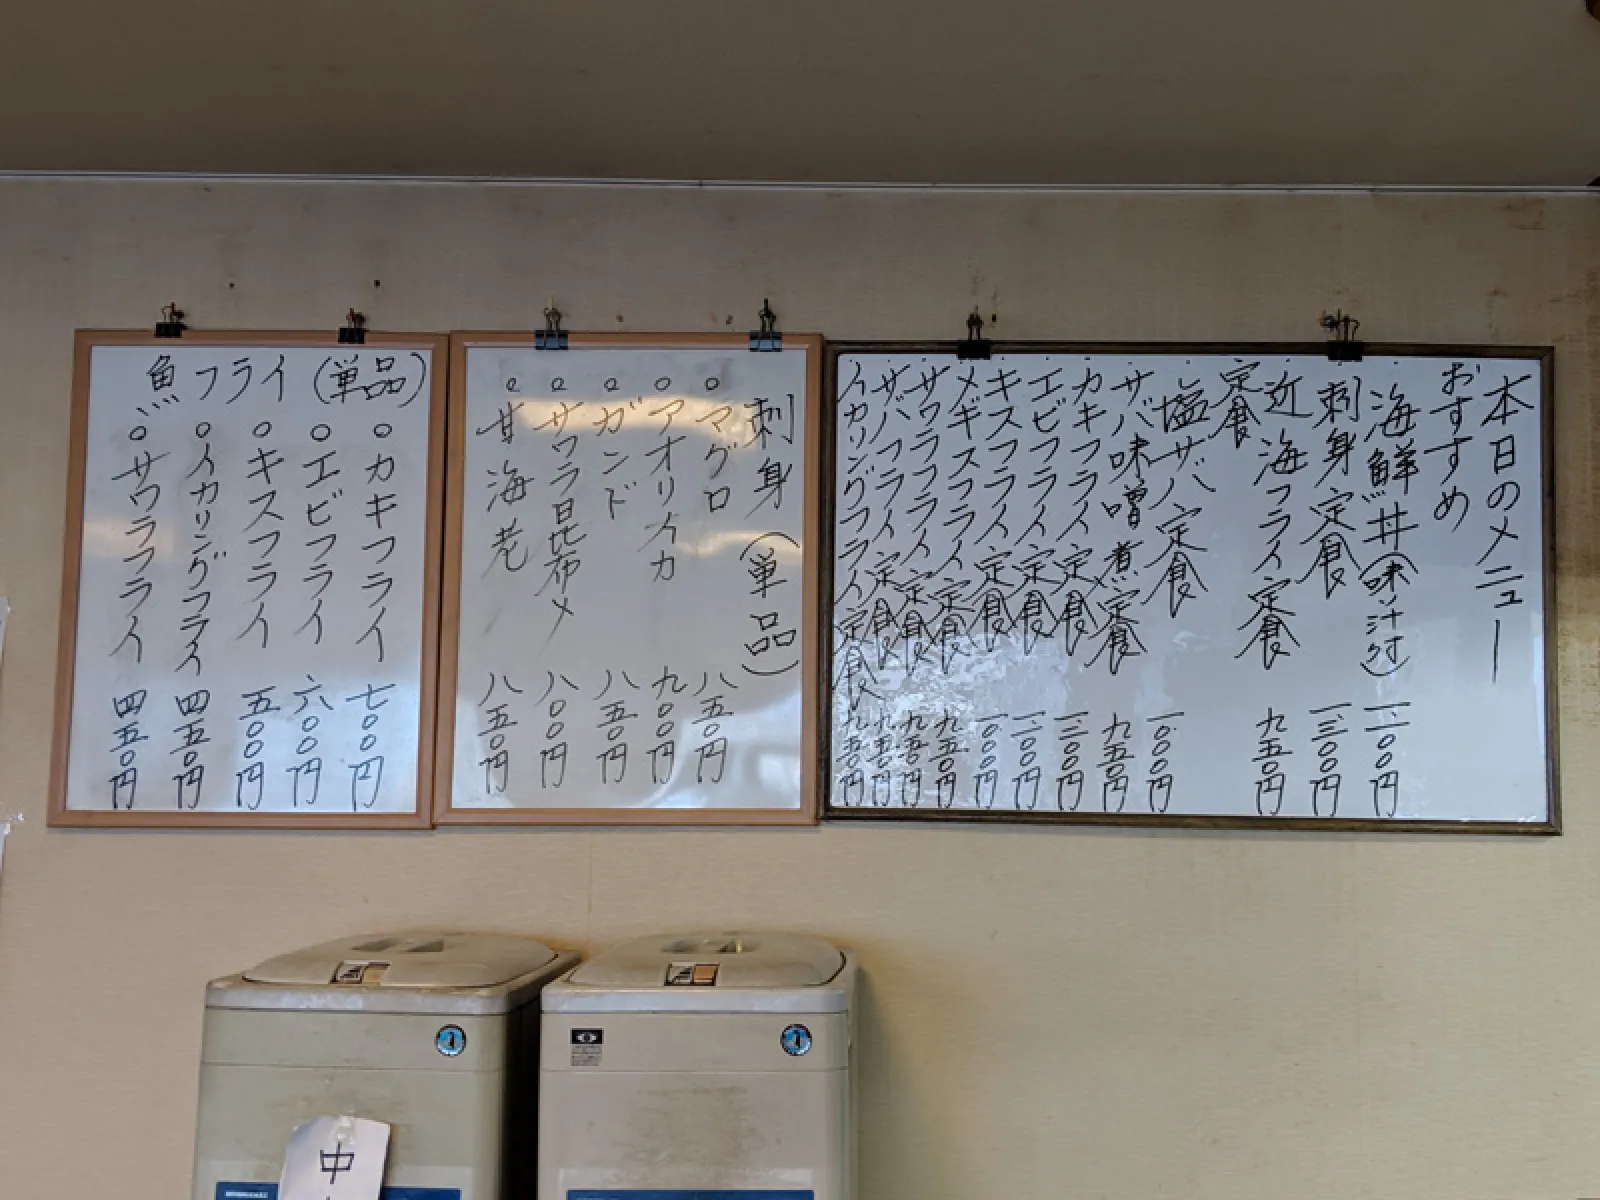 本日のメニュー
おすすめ
・海鮮丼(味汁付) 一、二〇〇円
・刺身定食 一、三〇〇円
・近海フライ定食 九五〇円
定食
・塩サバ定食 一、〇〇〇円
・サバ味噌煮定食 九五〇円
・カキフライ定食 一、二〇〇円
・エビフライ定食 一、一〇〇円
・キスフライ定食 一、〇〇〇円
・メギスフライ定食 九五〇円
・サワラフライ定食 九五〇円
・サバフライ定食 九五〇円
・イカリングフライ定食 九五〇円
刺身(単品)
○マグロ 八五〇円
○アオリイカ 九〇〇円
○ガンド 八五〇円
○サワラ昆布〆 八〇〇円
○甘海老 八五〇円
魚フライ(単品)
○カキフライ 七〇〇円
○エビフライ 六〇〇円
○キスフライ 五〇〇円
○イカリングフライ 四五〇円
○サワラフライ 四五〇円
中